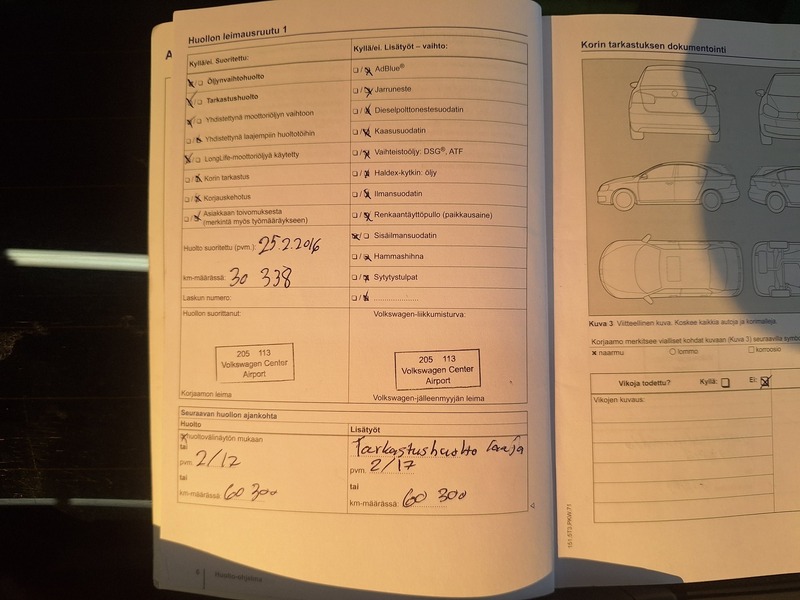 Huollon leimausruutu 1
Kyllä/ei. Suoritettu:
Öljynvaihtohuolto
Tarkastushuolto
Yhdistettynä moottoriöljyn vaihtoon
Yhdistettynä laajempiin huoltotöihin
LongLife-moottoriöljyä käytetty
Korin tarkastus
Korjauskehotus
Asiakkaan toivomuksesta
(merkintä myös työmääräykseen)
Huolto suoritettu (pvm.): 25.2.2016
km-määrässä: 30 338
Laskun numero:
Huollon suorittanut:
205 113
Volkswagen Center
Airport
Korjaamon leima
Kyllä/ei. Lisätyöt – vaihto:
AdBlue®
Jarruneste
Dieselpolttonestesuodatin
Kaasusuodatin
Vaihteistoöljy: DSG®, ATF
Haldex-kytkin: öljy
Ilmansuodatin
Renkaantäyttöpullo (paikkausaine)
Sisäilmansuodatin
Hammashihna
Sytytystulpat
Volkswagen-liikkumisturva:
205 113
Volkswagen Center
Airport
Volkswagen-jälleenmyyjän leima
Seuraavan huollon ajankohta
Huolto
huoltovälinäytön mukaan
tai
pvm. 2/17
tai
km-määrässä: 60 300
Lisätyöt
Tarkastushuolto
pvm. 2/17
tai
km-määrässä: 60 300
6 Huolto-ohjelma
Korin tarkastuksen dokumentointi
Kuva 3 Viitteellinen kuva. Koskee kaikkia autoja ja korimalleja.
Korjaamo merkitsee vialliset kohdat kuvaan (Kuva 3) seuraavilla
naarmu lommo korroosio
Vikoja todettu? Kyllä: Ei:
Vikojen kuvaus:
151.5T3.PKW.71